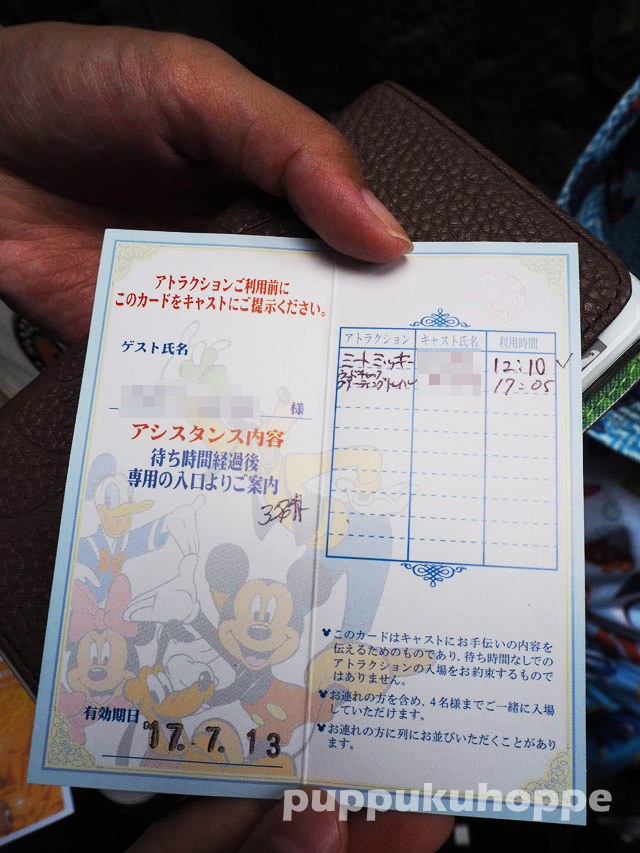 アトラクションご利用前に
このカードをキャストにご提示ください。
ゲスト氏名
様
アシスタンス内容
待ち時間経過後
専用の入口よりご案内
3名様
有効期日
'17.-7.13
アトラクション キャスト氏名 利用時間
ミートミッキー 12:10
17:05
このカードはキャストにお手伝いの内容を
伝えるためのものであり、待ち時間なしでの
アトラクションの入場をお約束するもので
はありません。
お連れの方を含め、4名様までご一緒に入場
していただけます。
お連れの方に列にお並びいただくことがあり
ます。
puppukuhoppe